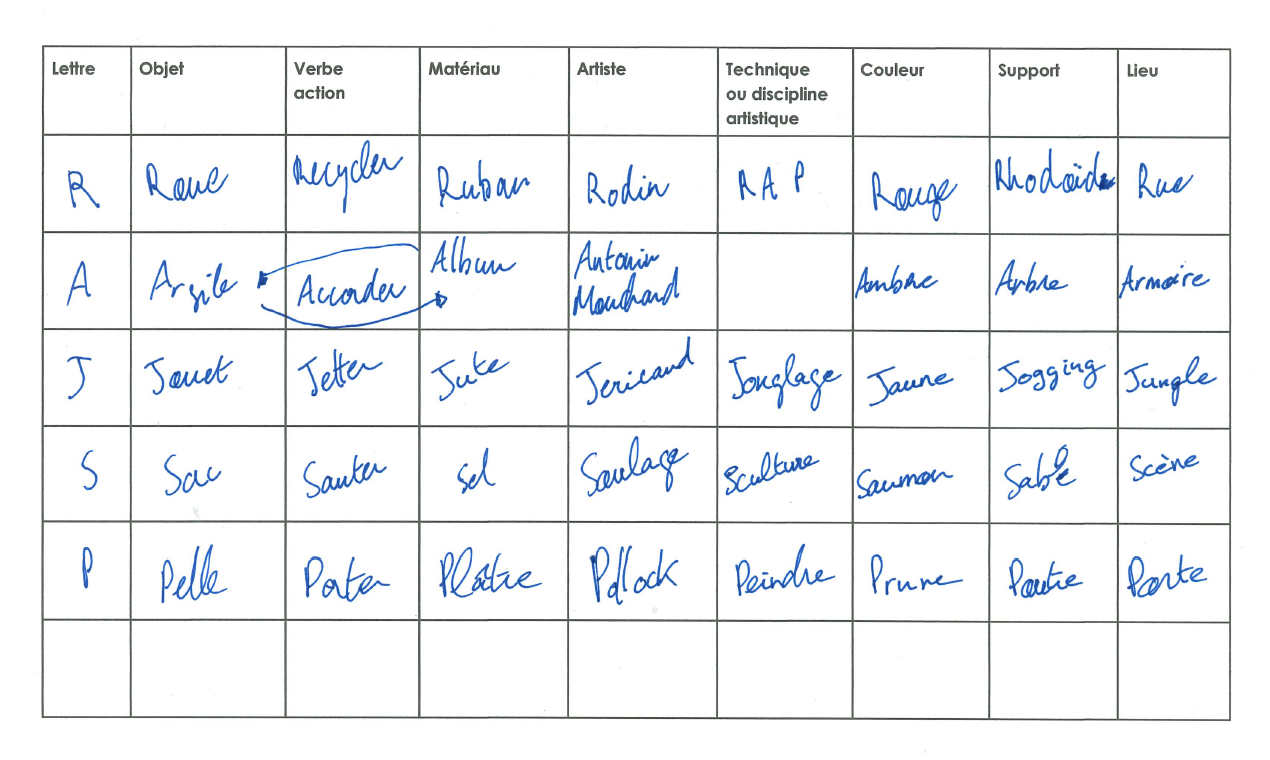 Lettre Objet Verbe action Matériau Artiste Technique ou discipline artistique Couleur Support Lieu
R Roue Recycler Ruban Rodin RAP Rouge Rhodoïd Rue
A Argile Accorder Album Antonin Mouchard Ambre Arbre Armoire
J Jouet Jetter Jute Jericaud Jonglage Jaune Jogging Jungle
S Sac Sauter Sel Soulage Sculture Saumon Sable Scène
P Pelle Porter Plâtre Pollock Peindre Prune Poutre Porte